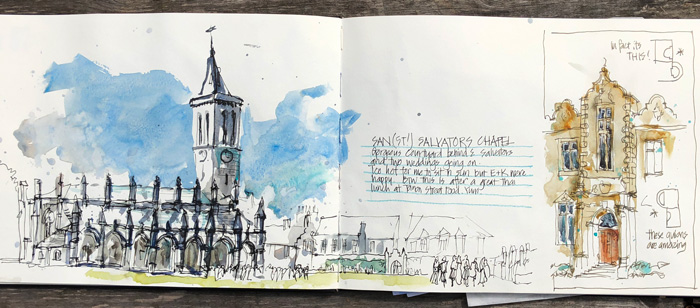 SAN(ST!) SALVATORS CHAPEL
gorgeous courtyard behind S. Salvators
and two weddings going on.
Too hot for me to sit in sun but E+K were
happy. BTW this is after a great Thai
lunch at street food. Yum!
In fact its
THIS!
these are amazing